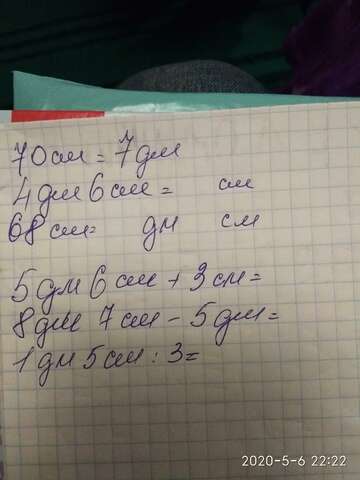 70см = 7дм
4дм 6см = см
68см= дм см
5дм 6см + 3см=
8дм 7см - 5дм=
1дм 5см : 3=
2020-5-6 22:22